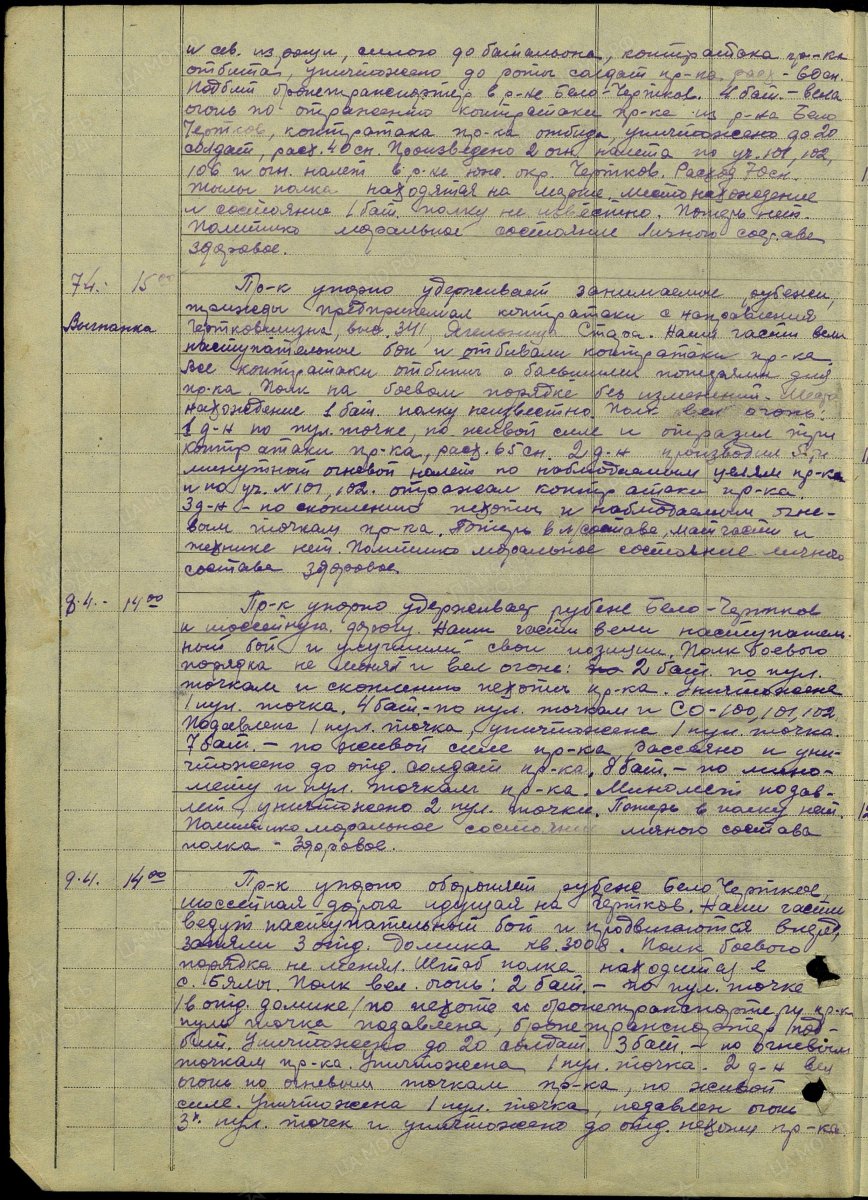 и сев. из рощи, силою до батальона, контратака пр-ка
отбита, уничтожено до роты солдат пр-ка расх - 60 сн.
Подбит бронетранспортер в р-не Бело-Чертков. 4 бат. - вела
огонь по отражению контратаки пр-ка из р-на Бело
Чертков, контратака пр-ка отбита, уничтожено до 20
солдат, расх. 40 сн. Произведено 2 огн. налета по уч. 101, 102,
106 и огн. налет в р-не юго. окр. Чертков. Расход 70 сн.
Тылы полка находятся на марше, местонахождение
и состояние 1 бат. полку не известно. Потерь нет.
Политико моральное состояние личного состава
здоровое.
7.4. 15 00 Пр-к упорно удерживает занимаемые рубежи,
трижды предпринимал контратаки с направления
Выгнанка Чертковщизна, выс. 341, Ягельница Стара. Наши части вели
наступательные бои и отбивали контратаки пр-ка
Все контратаки отбиты с большими потерями для
пр-ка. Полк на боевом порядке без изменений. Место
нахождение 1 бат. полку неизвестно. Полк вел огонь:
1 д-н по пул. точке, по живой силе и отразил три
контратаки пр-ка, расх. 65 сн. 2 д-н производил
минутный огневой налет по наблюдаемым целям пр-ка
и по уч. N 101, 102. отражал контратаки пр-ка.
3 д-н - по скоплению пехоты и наблюдаемым огне-
вым точкам пр-ка. Потерь в л/составе, матчасти и
технике нет. Политико моральное состояние личного
состава здоровое
8.4. - 14 00 Пр-к упорно удерживает рубеже Бело-Чертков
и шоссейную дорогу. Наши части вели наступатель
ный бой и улучшили свои позиции. Полк боевого
порядка не менял и вел огонь: 2 бат. по пул.
точкам и скоплению пехоты пр-ка. Уничтожена
1 пул. точка. 4 бат - по пул. точкам и СО-100, 101, 102.
Подавлена 1 пул. точка, уничтожена 1 пул. точка.
7 бат. - по живой силе пр-ка, рассеяно и уни-
чтожено до отд. солдат пр-ка. 8 бат. - по мино-
мету и пул. точкам пр-ка. Миномет подав-
лен, уничтожено 2 пул. точки. Потерь в полку нет.
Политико моральное состояние личного состава
полка - здоровое.
9.4. 14 00 Пр-к упорно обороняет рубеже Бело, Чертков,
шоссейная дорога идущая на Чертков. Наши части
ведут наступательный бой и продвигаются вперед,
заняли 3 отд. домика кв. 3008. Полк боевого
порядка не менял. Штаб полка находится в
с. Бялы. Полк вел огонь: 2 бат. - по пул. точке
/в отд. домике/ по пехоте и бронетранспортеру пр-ка
пул. точка подавлена, бронетранспортер под-
бит. Уничтожено до 20 солдат. 3 бат. - по огневым
точкам пр-ка. Уничтожена 1 пул. точка. 2 д-н вел
огонь по огневым точкам пр-ка, по живой
силе. Уничтожена 1 пул. точка, подавлен огонь
3х пул. точек и уничтожено до отд. пехоты пр-ка